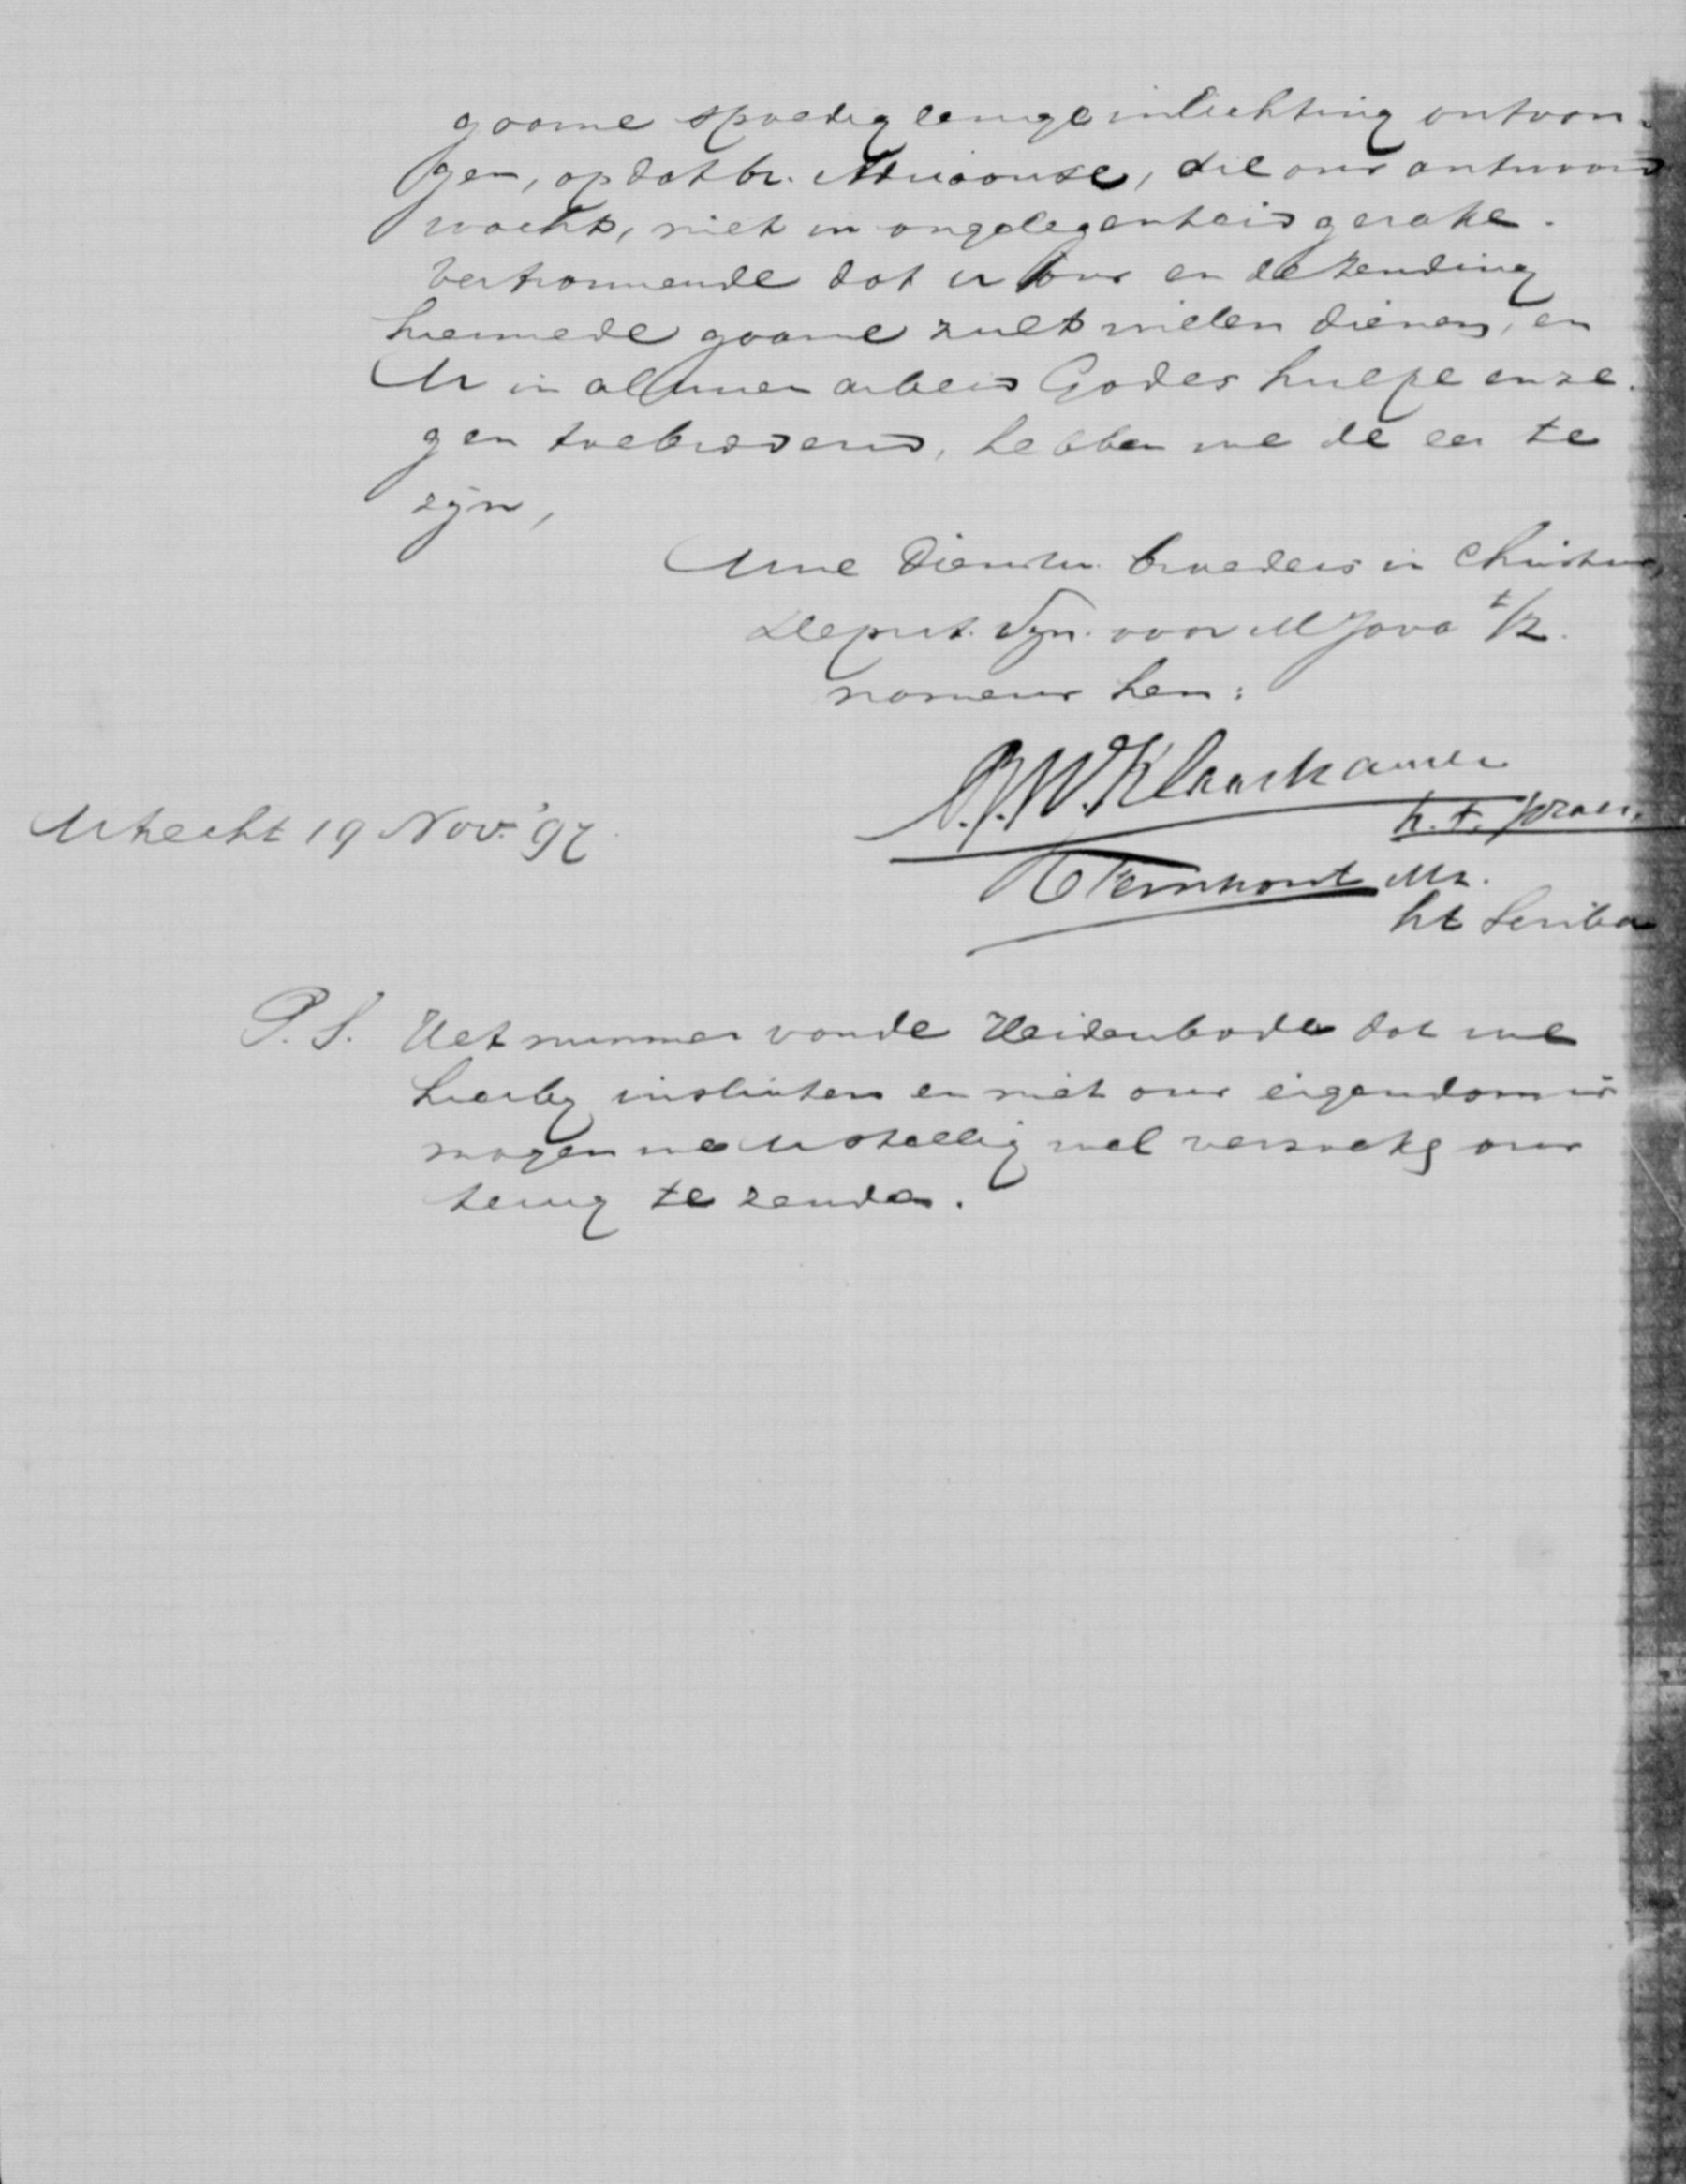 gaarne spoedig eenige inlichting ontvan-
gen, opdat br. Adriaanse, die ons antwoord
wacht, niet in ongelegenheid gerake.
Vertrouwende dat u ons en de Zending
hiermede gaarne zult willen dienen, en
U in al uwen arbeid Godes hulpe en ze-
gen toebiddend, hebben we de eer te
zijn,
Uwe Dienstw. broeders in Christus,
Deput. Syn. voor M Java t/Z.
namens hen:
Klaarhamer
h. t. praes.
Utrecht 19 Nov. '97.
Fernhout Mz.
ht Scriba
P. S. Het nummer van de Heidenbode dat we
hierbij insluiten en niet ons eigendom is
mogen we U stellig wel verzoeken ons
terug te zenden.